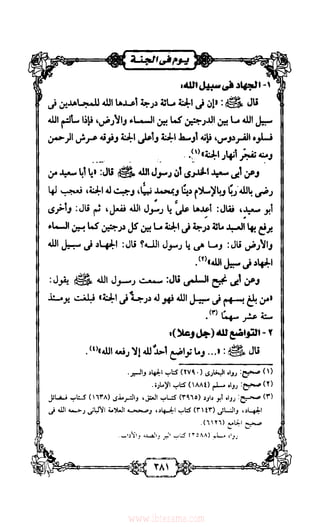 يوم في الجنة
١- الجهاد في سبيل الله:
قال ﷺ: «إن في الجنة مائة درجة أعدها الله للمجاهدين في
سبيل الله ما بين الدرجتين كما بين السماء والأرض، فإذا سألتم الله
فسلوه الفردوس، فإنه أوسط الجنة وأعلى الجنة وفوقه عرش الرحمن
ومنه تفجر أنهار الجنة»(١).
وعن أبي سعيد الخدري أن رسول الله ﷺ قال: «يا أبا سعيد من
رضي بالله ربًا وبالإسلام دينًا وبمحمد نبيًا، وجبت له الجنة، فعجب لها
أبو سعيد، فقال: أعدها علي يا رسول الله ففعل، ثم قال: وأخرى
يرفع بها العبد مائة درجة في الجنة ما بين كل درجتين كما بين السماء
والأرض قال: وما هي يا رسول الله؟ قال: الجهاد في سبيل الله
الجهاد في سبيل الله»(٢).
وعن أبي نجيح السلمي قال: سمعت رسول الله ﷺ يقول:
«من بلغ بسهم في سبيل الله فهو له درجة في الجنة» فبلغت يومئذ
ستة عشر سهمًا(٣).
٢- التواضع لله (جل وعلا):
قال ﷺ: «... وما تواضع أحدٌ لله إلا رفعه الله»(٤).
(١) صحيح: رواه البخاري (٢٧٩٠) كتاب الجهاد والسير.
(٢) صحيح: رواه مسلم (١٨٨٤) كتاب الإمارة.
(٣) صحيح: رواه أبو داود (٣٩٦٥) كتاب العتق، والترمذي (١٦٣٨) كتاب فضائل
الجهاد، والنسائي (٣١٤٣) كتاب الجهاد، وصححه العلامة الألباني رحمه الله في
صحيح الجامع (٦١٢٦).
رواه مسلم (٢٥٨٨) كتاب البر والصلة والآداب.
٢٨١
www.ibtesama.com